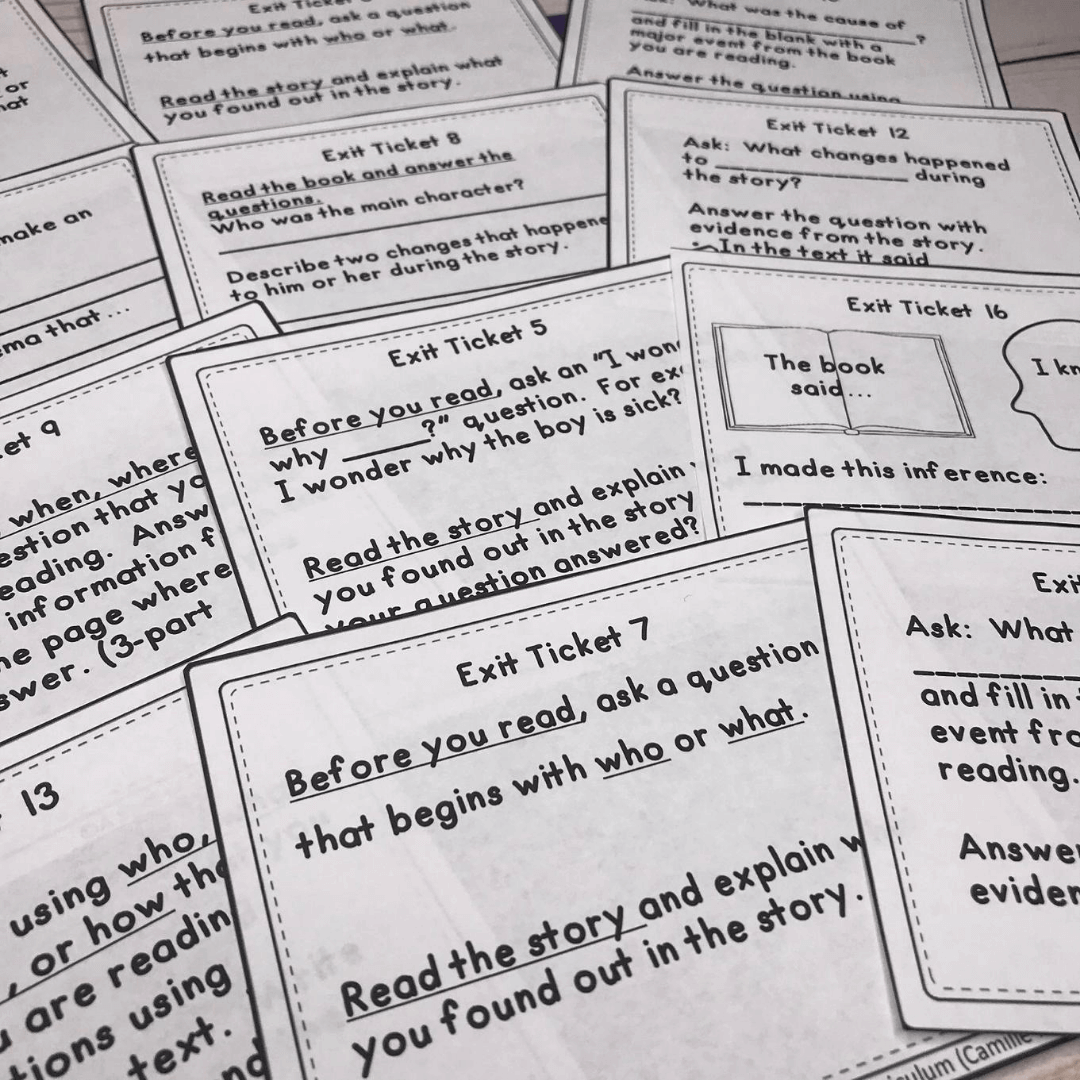 or
hat
Exit Ticket
Before you read, ask a question
that begins with who or what.
Read the story and explain what
you found out in the story.
What was the cause of
__________?
and fill in the blank with a
major event from the book
you are reading.
Answer the question using
make an
ma that ...
Exit Ticket 8
Read the book and answer the
questions.
Who was the main character?
Describe two changes that happene
to him or her during the story.
Exit Ticket 12
Ask: What changes happened
to __________ during
the story?
Answer the question with
evidence from the story.
In the text it said
et 9
when, where
estion that yo
eading. Answ
information f
he page where
swer. (3-part
Exit Ticket 5
Before you read, ask an "I won
why ______?" question. For ex
I wonder why the boy is sick?
Read the story and explain
you found out in the story
your question answered?
Exit Ticket 16
The book
said...
I kn
I made this inference:
13
using who,
, or how tha
u are readin
tions using
text.
nd
Exit Ticket 7
Before you read, ask a question
that begins with who or what.
Read the story and explain w
you found out in the story.
Exi
Ask: What
__________
and fill in
event fro
reading.
Answe
eviden
culum (Camille